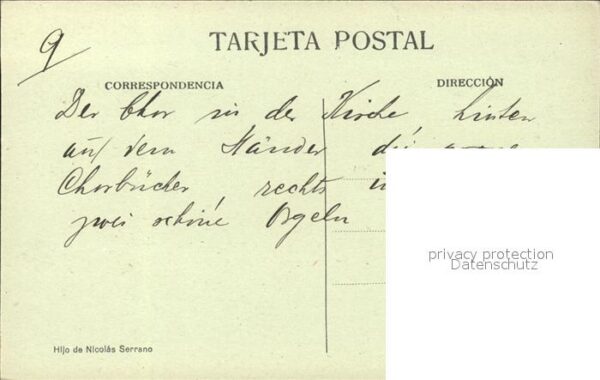 9
TARJETA POSTAL
CORRESPONDENCIA
DIRECCIÓN
Der Chor in der Kirche hinten
auf dem Ständer die
Chorbücher rechts
zwei schöne Orgeln
privacy protection
Datenschutz
Hijo de Nicolás Serrano